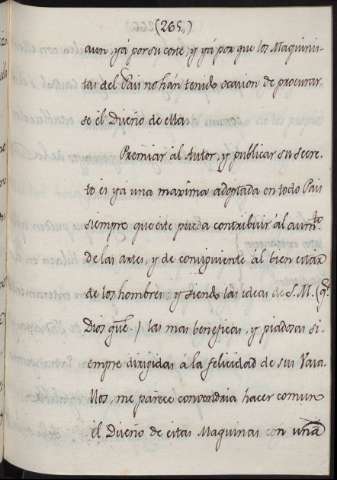 (265.)
aun, yá por su corte, y yá por que los Maquinis-
tas del Pais no hán tenido ocasion de procurar-
se el Diseño de ellas.
Premiar ál Autor, y publicar su secre-
to es ya una maxîma adoptada en todo Pais
siempre que éste pueda contribuir ál aumto
de las artes, y de consiguiente ál bien estar
de los hombres, y siendo las ideas de S. M. (q.e
Dios gue. / las mas beneficas, y piadosas si-
empre dirigidas á la felicidad de sus Vasa-
llos, me parece convendria hacer comun
el Diseño de estas Maquinas con una